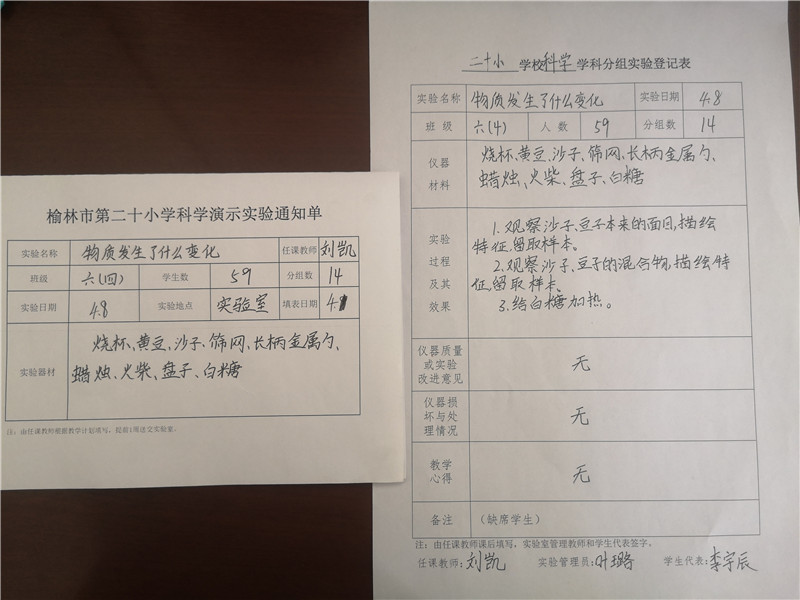 榆林市第二十小学科学演示实验通知单
实验名称 物质发生了什么变化 任课教师 刘凯
班级 六(四) 学生数 59 分组数 14
实验日期 4.8 实验地点 实验室 填表日期 4.1
实验器材 烧杯、黄豆、沙子、筛网、长柄金属勺、
蜡烛、火柴、盘子、白糖
注：由任课教师根据教学计划填写，提前1周送交实验室。
二十小 学校 科学 学科分组实验登记表
实验名称 物质发生了什么变化 实验日期 4.8
班级 六(4) 人数 59 分组数 14
仪器
材料
烧杯、黄豆、沙子、筛网、长柄金属勺、
蜡烛、火柴、盘子、白糖
实验
过程
及其
效果
1.观察沙子、豆子本来的面目,描绘
特征,留取样本。
2.观察沙子、豆子的混合物,描绘特
征,留取样本。
3.给白糖加热。
仪器质量
或实验
改进意见
无
仪器损
坏与处
理情况
无
教学
心得
无
备注 （缺席学生）
注：由任课教师课后填写，实验室管理教师和学生代表签字。
任课教师:刘凯 实验管理员:叶璐 学生代表:李宇辰